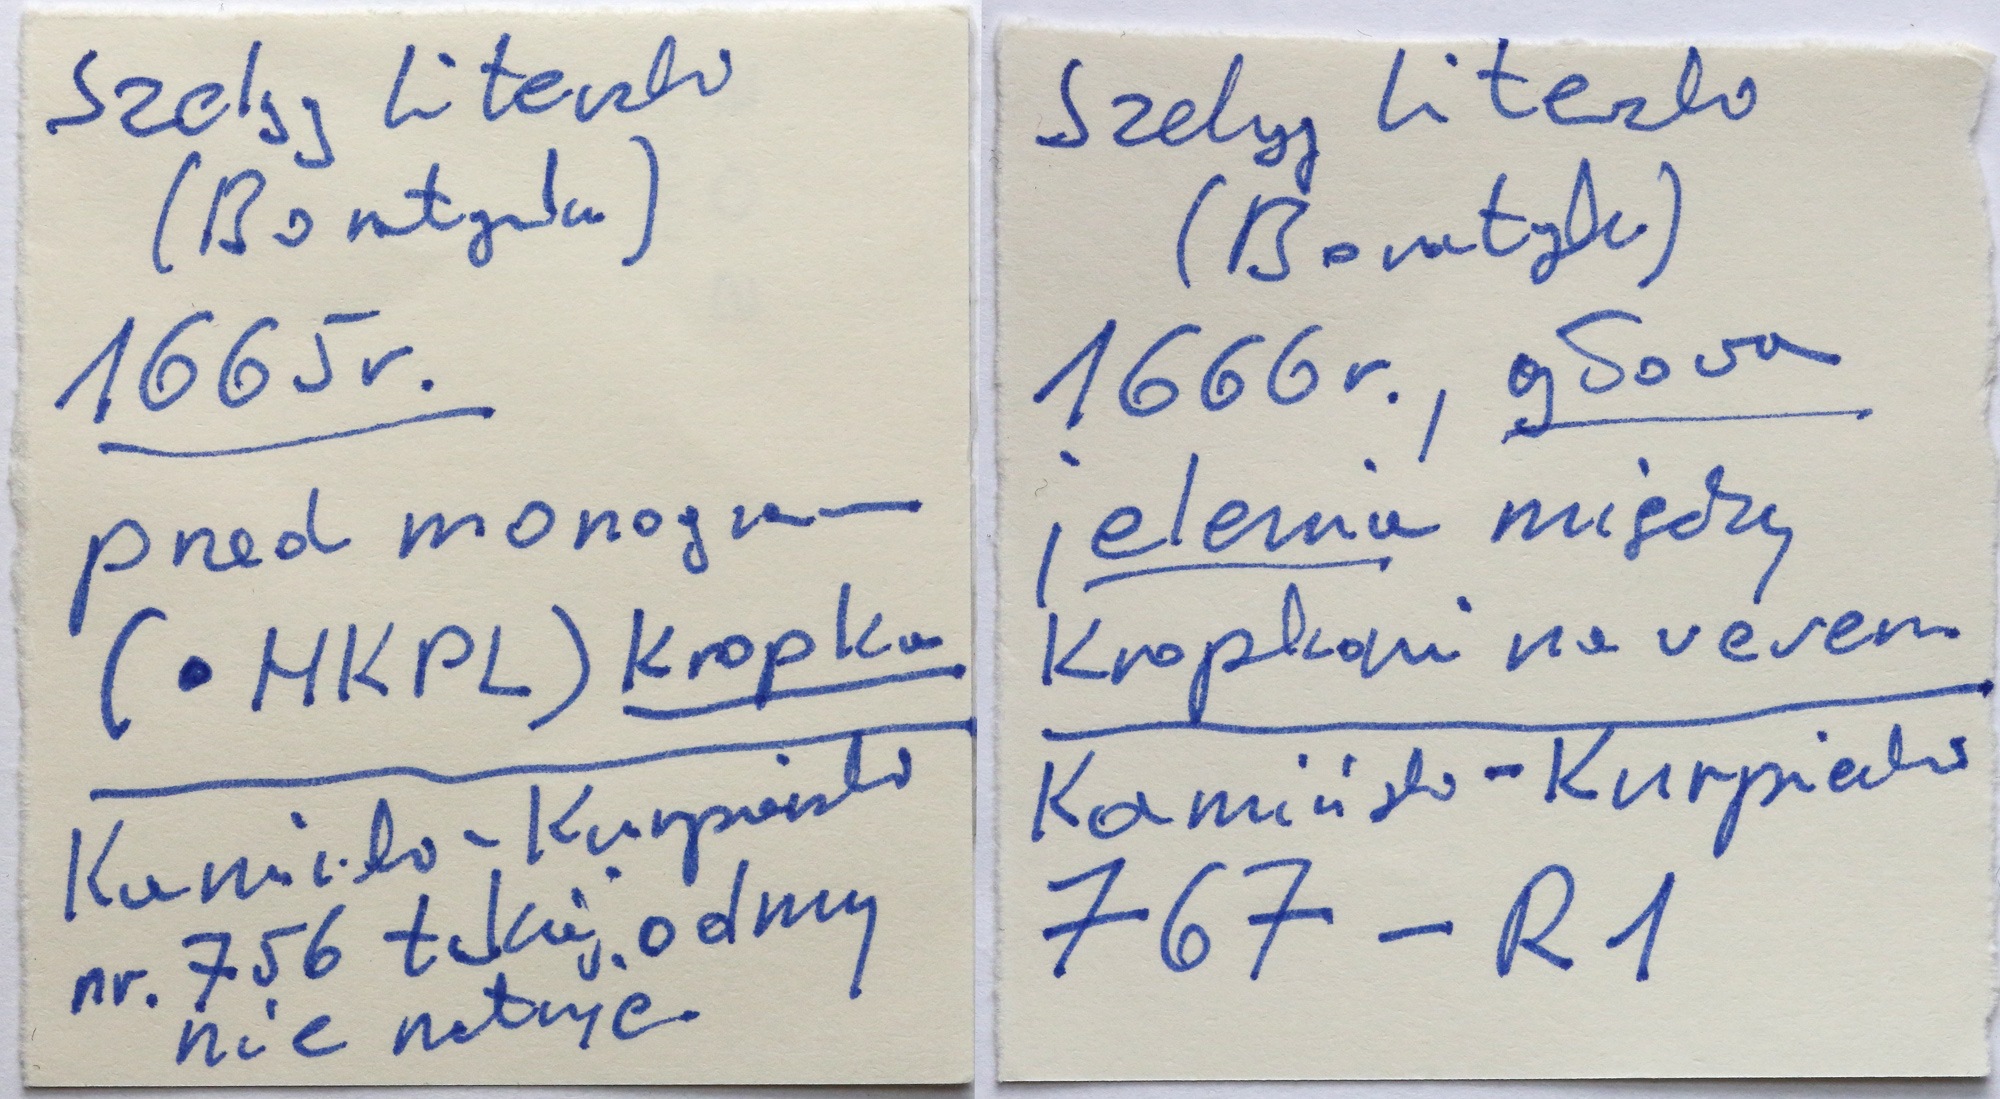 Szeląg litewski
(Boratynka)
1665r.
przed monogra—
(• HKPL) kropka
Kamiński-Kurpiewski
nr. 756 takiej odmiany
nie notuje.
Szeląg litewski
(Boratynka)
1666r., głowa
jelenia między
kropkami na rewers
Kamiński-Kurpiewski
767 – R1